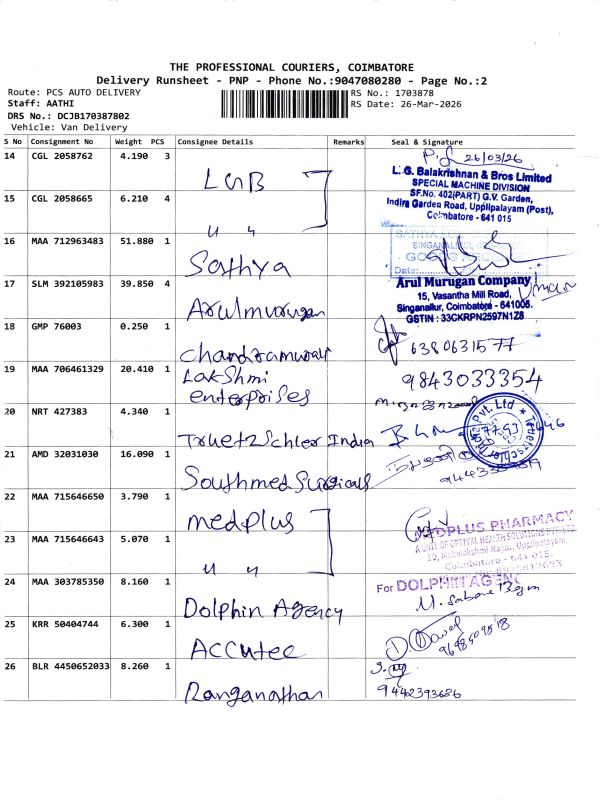 THE PROFESSIONAL COURIERS, COIMBATORE
Delivery Runsheet - PNP - Phone No.:9047080280 - Page No.:2
Route: PCS AUTO DELIVERY
RS No.: 1703878
Staff: AATHI
RS Date: 26-Mar-2026
DRS No.: DCJB170387802
Vehicle: Van Delivery
S No Consignment No Weight PCS Consignee Details Remarks Seal & Signature
14 CGL 2058762 4.190 3 LGB 26/03/26
L.G. Balakrishnan & Bros Limited
SPECIAL MACHINE DIVISION
SF.No. 402(PART) G.V. Garden,
Indira Garden Road, Uppilipalayam (Post),
Coimbatore - 641 015
15 CGL 2058665 6.210 4 " "
16 MAA 712963483 51.880 1 Sathya
Date:
17 SLM 392105983 39.850 4 Arulmurugan
Arul Murugan Company
15, Vasantha Mill Road,
Singanallur, Coimbatore - 641005.
GSTIN : 33CKRPN2597N1Z8
18 GMP 76003 0.250 1 Chandramurali 6380631577
19 MAA 706461329 20.410 1 Lakshmi enterprises 9843033354
20 NRT 427383 4.340 1 Truetzschler India
21 AMD 32031030 16.090 1 Southmed Surgicals
22 MAA 715646650 3.790 1 medplus
MEDPLUS PHARMACY
A UNIT OF OPTIVAL HEALTH SOLUTIONS PVT LTD
Coimbatore - 641 015.
23 MAA 715646643 5.070 1 " "
24 MAA 303785350 8.160 1 Dolphin Agency
For DOLPHIN AGENCY
25 KRR 50404744 6.300 1 Accutec
26 BLR 4450652033 8.260 1 Ranganathan 9442393686